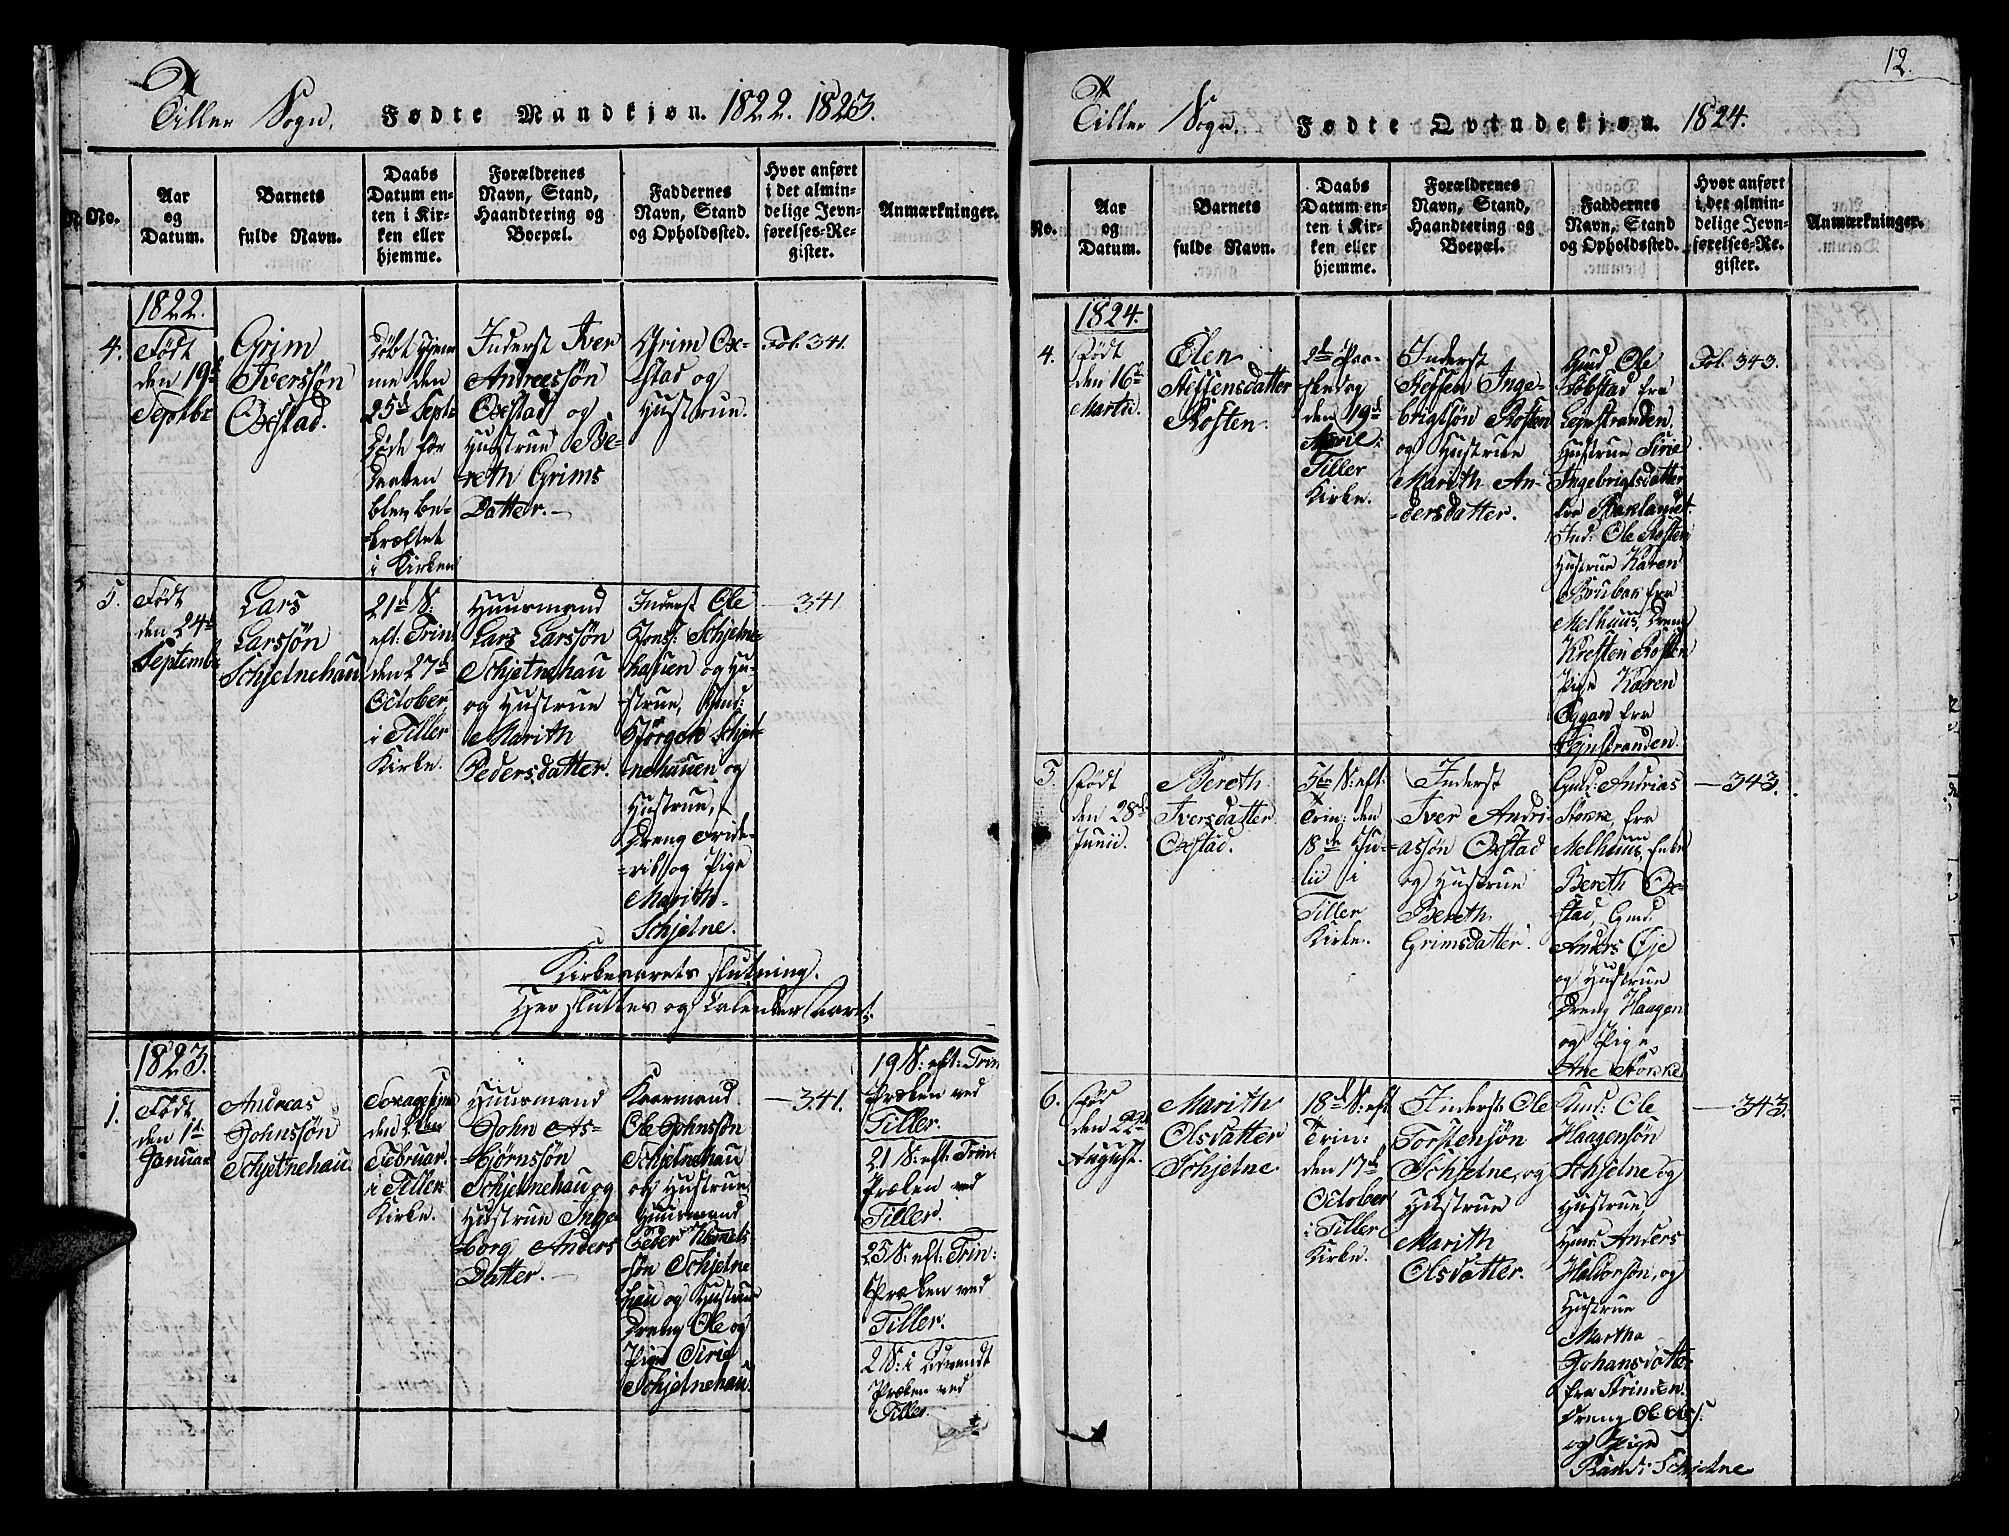 Tiller Sogn. Fødte Mandkjøn. 1822. 1823.
No.
Aar
og
Datum.
Barnets
fulde Navn.
Daabs
Datum en-
ten i Kir-
ken eller
hjemme.
Forældrenes
Navn, Stand,
Haandtering og
Boepæl.
Faddernes
Navn, Stand
og Opholdssted.
Hvor anført
i det almin-
delige Jevn-
førelses-Re-
gister.
Anmærkninger.
1822.
4.
Født
den 19de
Septbr
Grim
Iverssøn
Oxstad.
Døbt hjem-
me den
25de Septr
Døde før
Daaben
blev be-
kræftet
i Kirken
Inderst Iver
Andreassøn
Oxstad og
Hustrue Be-
reth Grims
Datter.
Grim Ox-
stad og
Hustrue.
Fol. 341.
5.
Født
den 24de
Septembr
Lars
Larssøn
Schjetnehau
21de S:
eft: Trin:
den 27de
October
i Tiller
Kirke.
Huusmand
Lars Larssøn
Schjetnehau
og Hustrue
Marith
Pedersdatter.
Inderst Ole
Jons: Schjetne-
hauen og Hu-
strue, Huusmd:
Jørgen Schjet-
nehauen og
Hustrue,
Dreng Fride-
rik og Pige
Marith
Schjetne.
— 341.
Kirkeaarets Slutning.
Her sluttes og Calender Aaret.
1823.
1.
Født
den 1de
Januar
Andreas
Johnssøn
Schjetnehau.
Sexagesima
den 2den
Februar.
i Tiller
Kirke.
Huusmand
John As-
bjørnssøn
Schjetnehau og
Hustrue Inge-
borg Anders
Datter.
Kaarmand
Ole Johnssøn
Schjetnehau
og Hustrue
Huusmand
Peder
søn Schjetne
hau og Hustrue
Dreng Ole og
Pige Sirie
Schjetnehau.
— 341.
19 S: eft: Trin
Præken ved
Tiller.
21 S: eft: Trin:
Præken ved
Tiller.
25 S: eft: Trin:
Præken ved
Tiller.
2 S: i Advendt
Præken ved
Tiller.
12.
Tiller Sogn. Fødte Qvindekjøn. 1824.
No.
Aar
og
Datum.
Barnets
fulde Navn.
Daabs
Datum en-
ten i Kir-
ken eller
hjemme.
Forældrenes
Navn, Stand,
Haandtering og
Boepæl.
Faddernes
Navn, Stand
og Opholdssted.
Hvor anført
i det almin-
delige Jevn-
førelses-Re-
gister.
Anmærkninger.
1824.
4.
Født
den 16de
Marts.
Elen
Rosten.
2de Paa-
skedag
den 19de
Tiller
Kirke.
Inderst
Inge-
brigtsøn Rosten
og Hustrue
Marith An-
dersdatter.
Gmd Ole
fra
Leinstranden.
Hustrue Sirie
Ingebrigtsdatter
fra Baklandet
Ind: Ole Rosten
Hustrue Karen
Brubak fra
Melhuus, Dreng
Kresten Rosten
Pige Karen
Eggan fra
Leinstranden.
Fol. 343.
5.
Født
den 28de
Junii.
Bereth
Iversdatter
Oxstad.
5te S: eft:
Trin: den
18de Ju-
lii i
Tiller
Kirke.
Inderst
Iver Andre-
assøn Oxstad
og Hustrue
Bereth
Grimsdatter.
Gmd: Andrias
fra
Melhuus, Enke
Bereth Ox-
stad, Gmd.
Anders Øje
og Hustrue
Dreng Haagen
og Pige
Ane
— 343.
6.
Fød
den 22de
August.
Marith
Olsdatter
Schjetne
18de S: eft
Trin:
den 17de
October
i Tiller
Kirke.
Inderst Ole
Torstensøn
Schjetne, og
Hustrue
Marith
Olsdatter.
Gmd: Ole
Haagensøn
Schjetne og
Hustrue
Huusm: Anders
Haldorsøn, og
Hustrue
Martha
Johansdatter
fra Strinden.
Dreng Ole Ols:
og Pige
Rand: Schjetne
— 343.